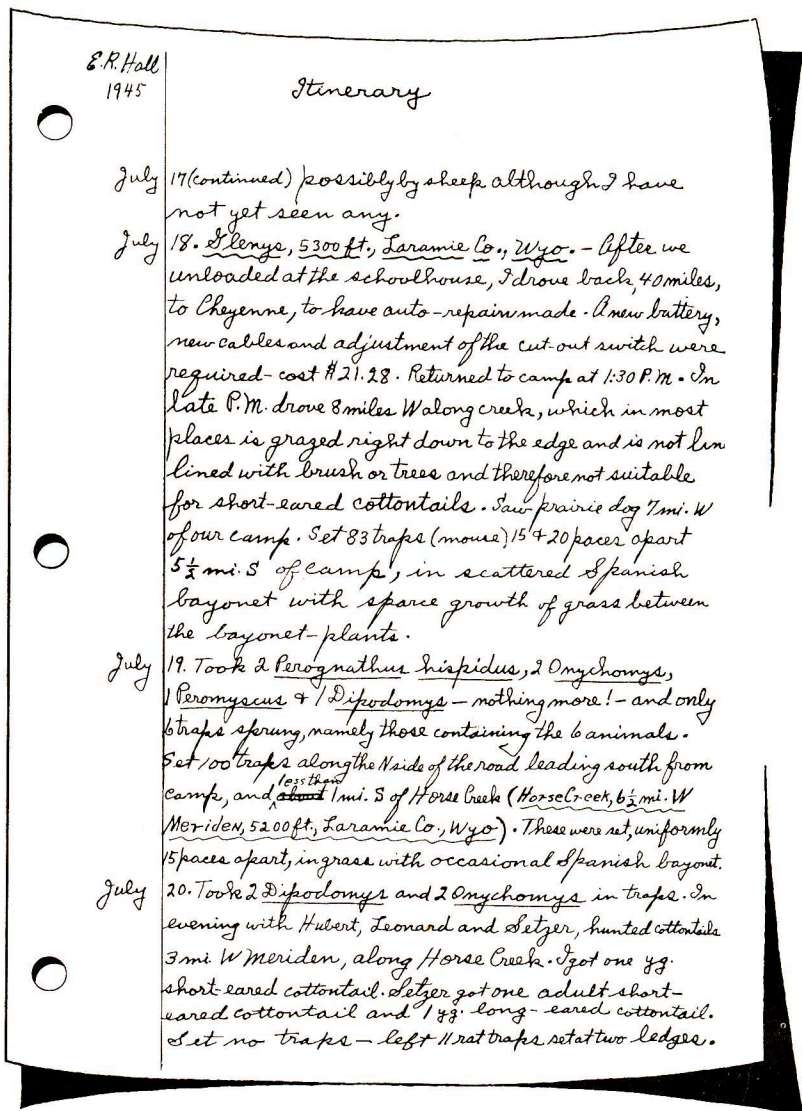 E.R. Hall
1945
Itinerary
July 17 (continued) possibly by sheep although I have
not yet seen any.
July 18. Glenys, 5300 ft., Laramie Co., Wyo. - After we
unloaded at the schoolhouse, I drove back, 40 miles,
to Cheyenne, to have auto-repair made. A new battery,
new cables and adjustment of the cut-out switch were
required - cost $21.28. Returned to camp at 1:30 P.M. In
late P.M. drove 8 miles W along creek, which in most
places is grazed right down to the edge and is not lin
lined with brush or trees and therefore not suitable
for short-eared cottontails. Saw prairie dog 7 mi. W
of our camp. Set 83 traps (mouse) 15 + 20 paces apart
5½ mi. S of camp, in scattered Spanish
bayonet with sparce growth of grass between
the bayonet-plants.
July 19. Took 2 Perognathus hispidus, 2 Onychomys,
1 Peromyscus + 1 Dipodomys - nothing more! - and only
6 traps sprung, namely those containing the 6 animals.
Set 100 traps along the N side of the road leading south from
less than
camp, and about 1 mi. S of Horse Creek (Horse Creek, 6½ mi. W
Meriden, 5200 ft., Laramie Co., Wyo). These were set, uniformly
15 paces apart, in grass with occasional Spanish bayonet.
July 20. Took 2 Dipodomys and 2 Onychomys in traps. In
evening with Hubert, Leonard and Setzer, hunted cottontails
3 mi W Meriden, along Horse Creek. I got one yg.
short-eared cottontail. Setzer got one adult short-
eared cottontail and 1 yg. long-eared cottontail.
Set no traps - left 11 rat traps set at two ledges.